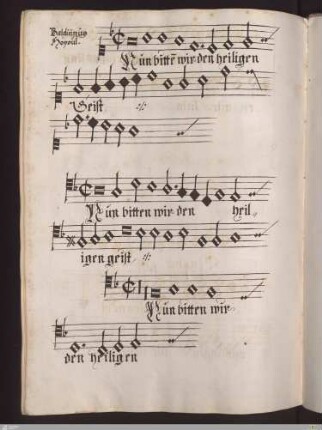 Balduinus
Hoyoul.
Nun bitten wir den heiligen
Geist :/:
Nun bitten wir den heil-
igen geist :/:
Nun bitten wir
den heiligen